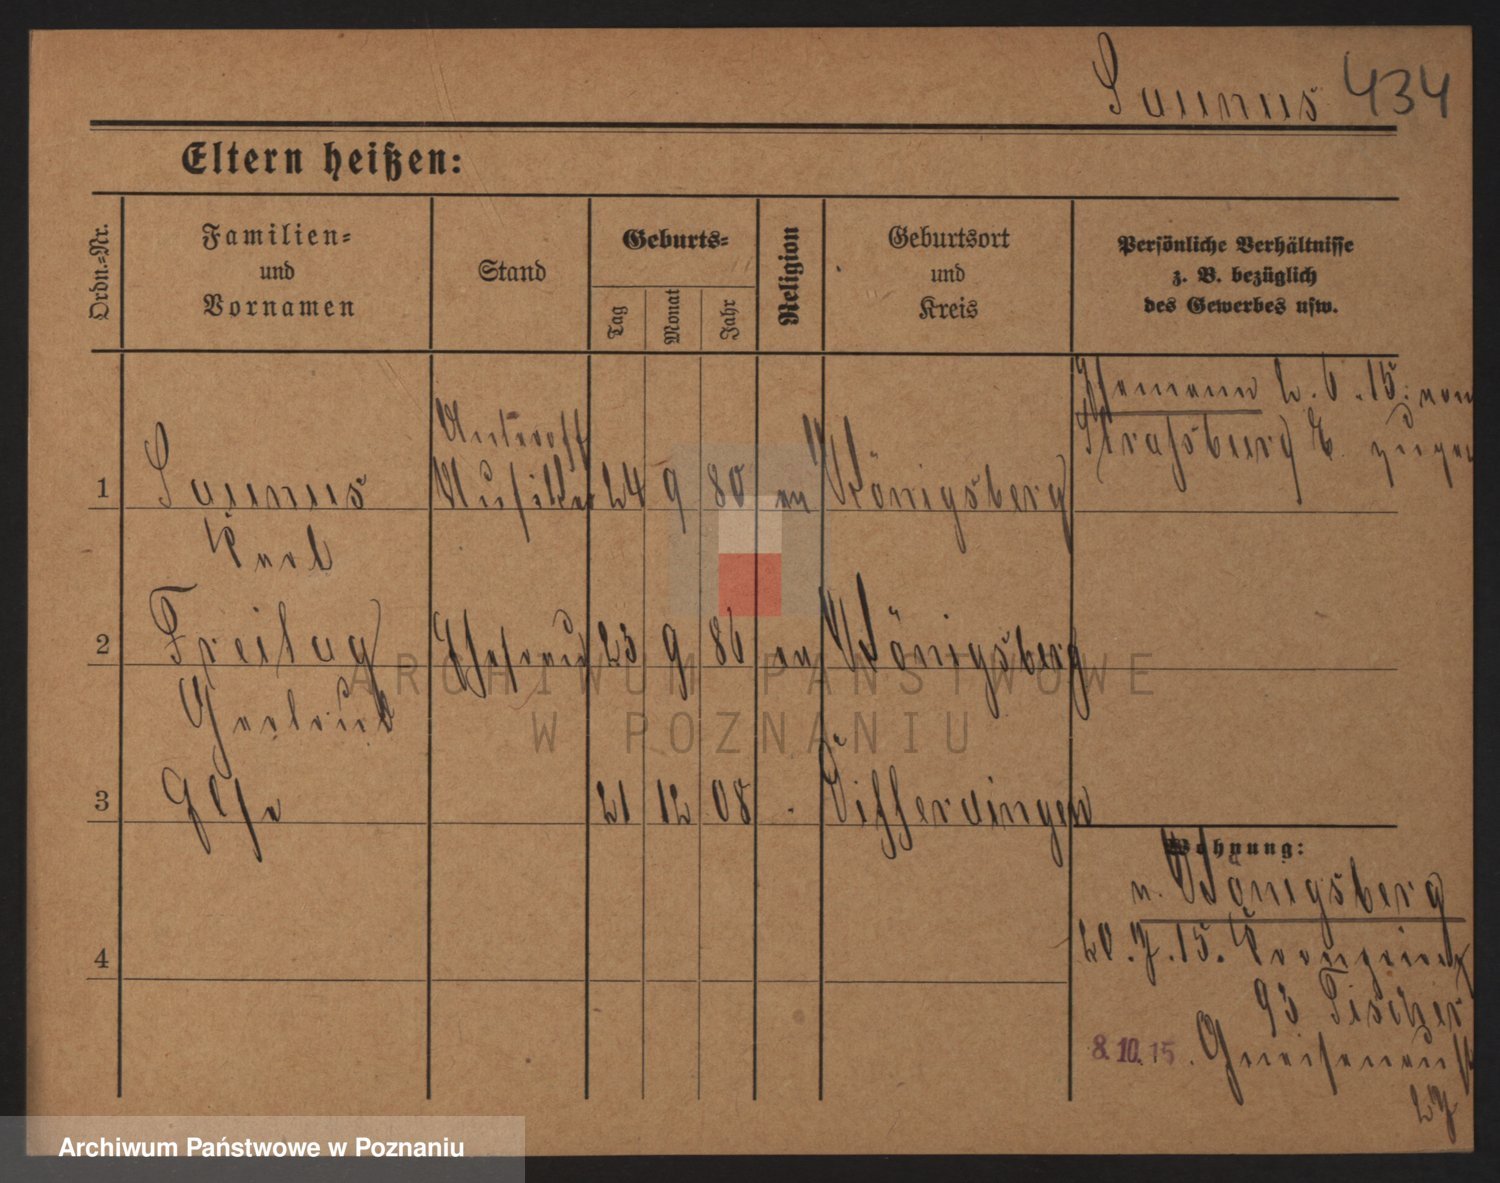 Saunus 434
Eltern heißen:
Ordn.-Nr.
Familien-
und
Vornamen
Stand
Geburts-
Tag
Monat
Jahr
Religion
Geburtsort
und
Kreis
Persönliche Verhältnisse
z. B. bezüglich
des Gewerbes usw.
Ehemann 2.6.15. von
Straßburg E. zugez
Unteroff
1 Saunus Musiker 24 9 80 ev Königsberg
Karl
2 Freitag Ehefrau 23 9 86 ev Königsberg
Gertrud
3 Else 21 12 08 Differdingen
4
Wohnung:
n. Königsberg
20.7.15. Kronprinz
93 Tischler
8.10.15. Gneisenaust
27
ARCHIWUM PAŃSTWOWE
W POZNANIU
Archiwum Państwowe w Poznaniu